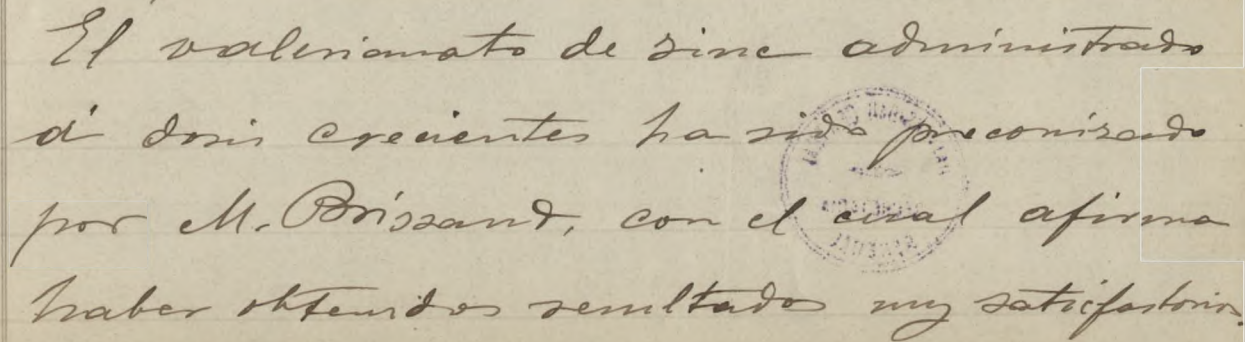 El valerianato de zinc administrado
á dosis crecientes ha sido preconizado
por M. Brissaud, con el cual afirma
haber obtenidos resultados muy satisfactorios.